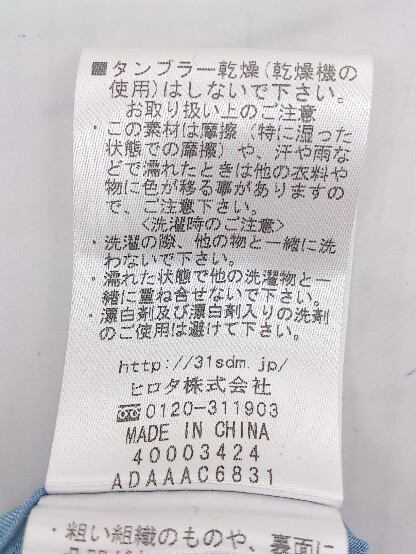 ■タンブラー乾燥(乾燥機の
使用)はしないで下さい。
お取り扱い上のご注意
・この素材は摩擦(特に湿った
状態での摩擦)や、汗や雨な
どで濡れたときは他の衣料や
物に色が移る事がありますの
で、ご注意下さい。
<洗濯時のご注意>
・洗濯の際、他の物と一緒に洗
わないで下さい。
・濡れた状態で他の洗濯物と一
緒に重ね合せないで下さい。
・漂白剤及び漂白剤入りの洗剤
のご使用は避けて下さい。
http://31sdm.jp/
ヒロタ株式会社
0120-311903
MADE IN CHINA
40003424
ADAAAC6831
・粗い組織のものや、裏面に